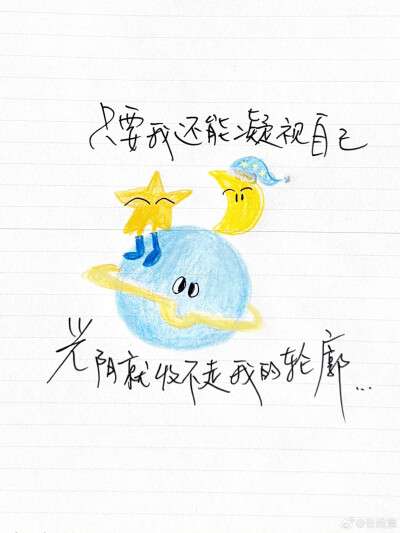 只要我还能凝视自己
光阴就收不走我的轮廓...